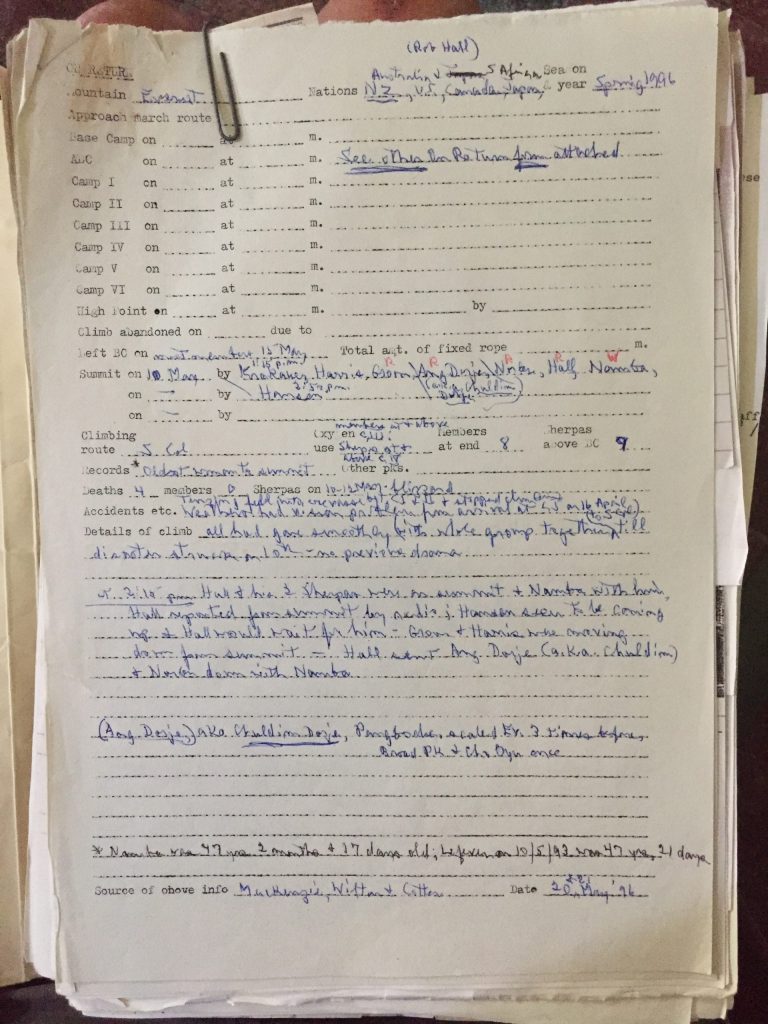 (Rob Hall)
ON RETURN Australia S Africa Sea on
Mountain Everest Nations N.Z., U.S., Canada, Japan, & year Spring 1996
Approach march route
Base Camp on at m.
ABC on at m. See other On Return form attached
Camp I on at m.
Camp II on at m.
Camp III on at m.
Camp IV on at m.
Camp V on at m.
Camp VI on at m.
High Point on at m. by
Climb abandoned on due to
Left BC on 15 May Total amt. of fixed rope m.
1:15 p.m. R R R R W
Summit on 10 May by Krakauer, Harris, Groom, (Ang Dorje), Norbu, Hall, Namba,
on — by Hansen (a.k.a. Chuldim Dorje)
on — by
members at & above
Climbing Oxygen C III; Members Sherpas
route S Col use Sherpas at & at end 8 above BC 9
above
Records * Oldest woman to summit Other pks.
Deaths 4 members 0 Sherpas on 10-12 May - blizzard
Accidents etc. Weather had been problem from arrival at on 16 April
Details of climb all had gone smoothly with whole group together till
disaster struck on 10th - no previous drama
2:10 pm Hall & his 2 Sherpas were on summit & Namba with him,
Hall reported from summit by radio; Hansen seen to be coming
up & Hall would wait for him - Groom & Harris were moving
down from summit - Hall sent Ang Dorje (a.k.a. Chuldim)
& Norbu down with Namba
(Ang Dorje) aka Chuldim Dorje, Pangboche, scaled Ev. 3 times before,
Broad Pk & Cho Oyu once
* Namba was 47 yrs 2 months & 17 days old; Lefever on 10/5/93 was 47 yrs, 21 days
Source of above info MacKenzie, Wilton & Cotter Date 20 May '96